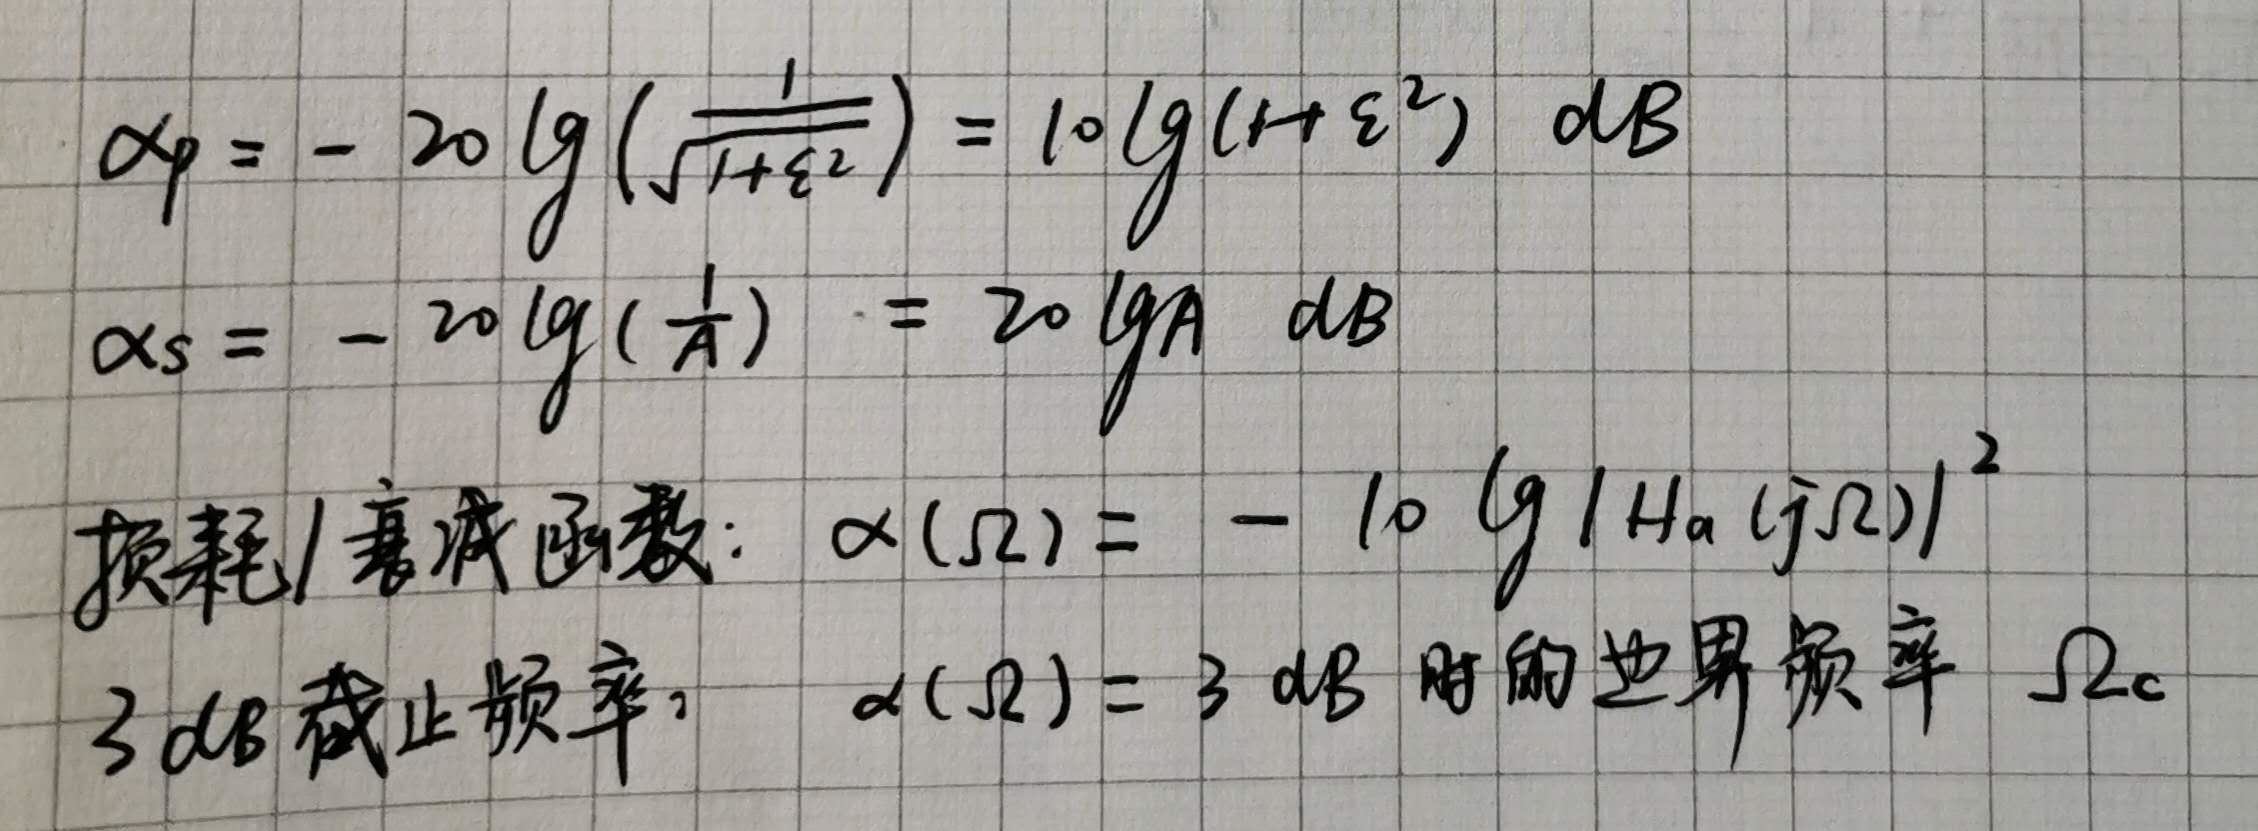 αp = - 20 lg(1/√(1+ε²)) = 10 lg(1+ε²) dB
αs = - 20 lg(1/A) = 20 lgA dB
损耗/衰减函数: α(Ω) = - 10 lg|Ha(jΩ)|²
3dB截止频率: α(Ω) = 3 dB 时的边界频率 Ωc